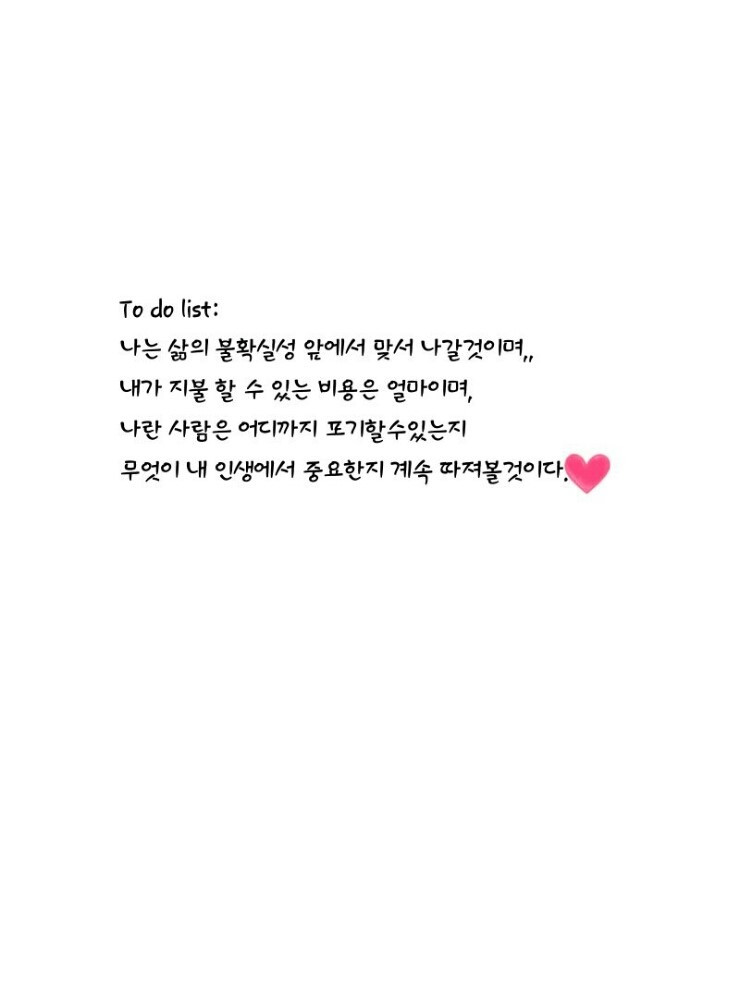 To do list:
나는 삶의 불확실성 앞에서 맞서 나갈것이며,,
내가 지불 할 수 있는 비용은 얼마이며,
나란 사람은 어디까지 포기할수있는지
무엇이 내 인생에서 중요한지 계속 따져볼것이다.